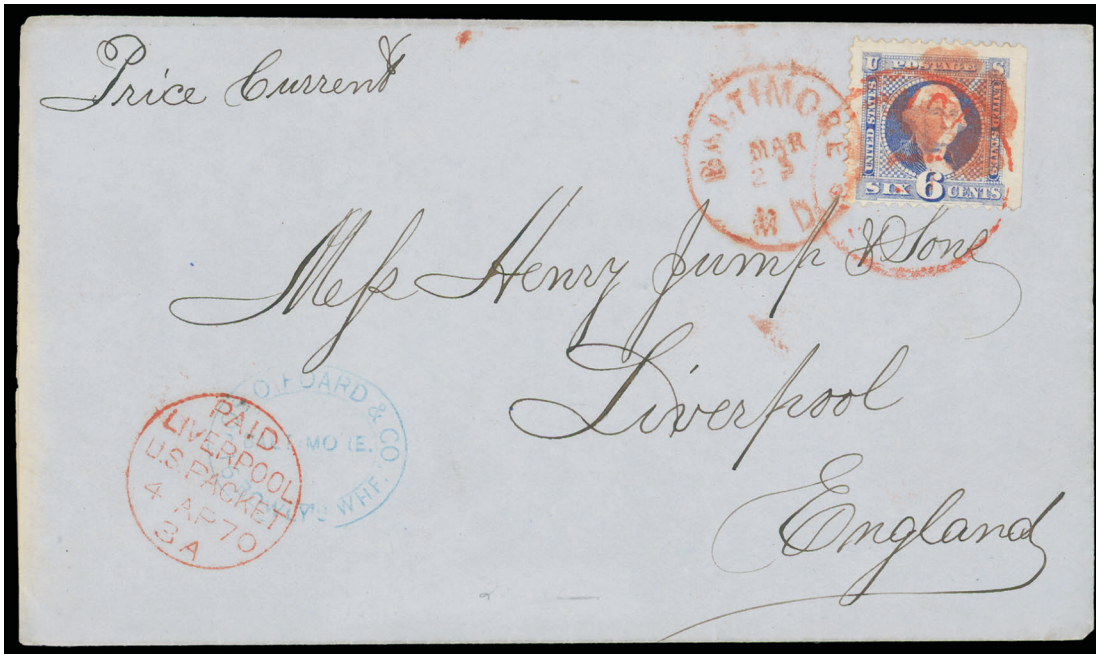 Price Current
BALTIMORE
MAR
MD.
U POSTAGE S
UNITED STATES
UNITED STATES
SIX 6 CENTS
Mess Henry Jump & Sons
Liverpool
England
FOARD & CO
WHF.
PAID
LIVERPOOL
U.S. PACKET
4 AP 70
3A